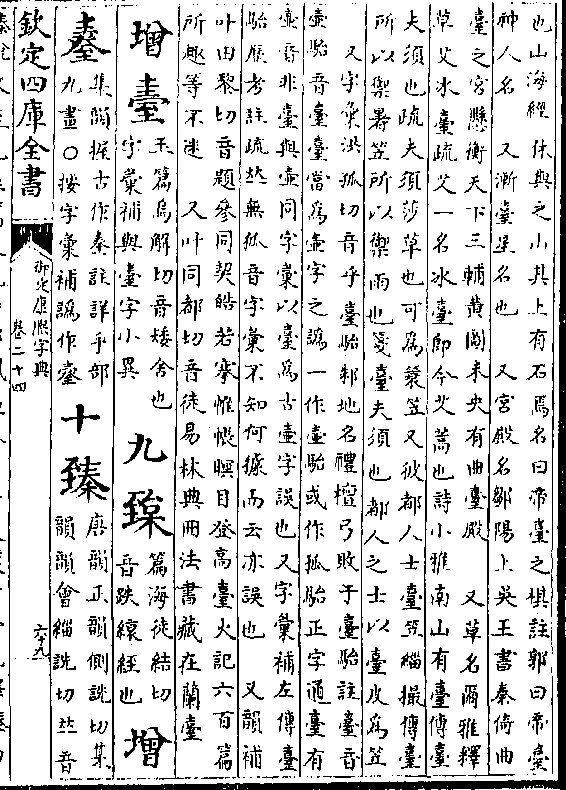 也山海經休與之山其上有石焉名曰帝臺之棋註郭曰帝臺
神人名　又漸臺星名也　又宮殿名鄒陽上吳王書秦倚曲
臺之宮懸衡天下三輔黃圖未央有曲臺殿　又草名爾雅釋
草艾冰臺疏艾一名冰臺卽今艾蒿也詩小雅南山有臺傳臺
夫須也疏夫須莎草也可爲蓑笠又彼都人士臺笠緇撮傳臺
所以禦暑笠所以禦雨也箋臺夫須也都人之士以臺皮爲笠
又字彙洪孤切音乎臺駘邾地名禮檀弓敗于臺駘註臺音
壺駘音臺臺當爲壺字之譌一作壺駘或作狐駘正字通臺有
壺音非臺與壺同字彙以臺爲古壺字誤也又字彙補左傳臺
駘歷考註疏𠀤無狐音字彙不知何據而云亦誤也　又韻補
叶田黎切音題參同契皓若褰帷帳瞑目登高臺火記六百篇
所趣等不迷　又叶同都切音徒易林典冊法書藏在蘭臺
增臺玉篇烏解切音矮舍也
字彙補與臺字小異
九臸篇海徒結切
音跌縗絰也
增
臺集韻握古作臺註詳手部
九畫○按字彙補譌作臺
十臻唐韻正韻側詵切集
韻韻會緇詵切𠀤音
欽定四庫全書
御定康熙字典
卷二十四
六九